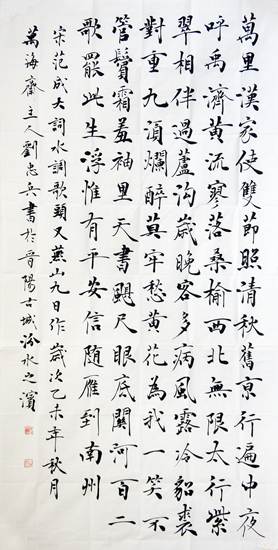 萬里漢家使雙節照清秋舊京行遍中夜
呼禹濟黃流寥落桑榆西北無限太行紫
翠相伴過蘆沟歲晚客多病風露冷貂裘
對重九須爛醉莫牢愁黃花為我一笑不
管鬢霜羞袖里天書咫尺眼底關河百二
歌罷此生浮惟有平安信隨雁到南州
宋范成大詞水調歌頭又燕山九日作歲次乙未年秋月
萬海齋主人劉忠兵書於晉陽古城汾水之濱